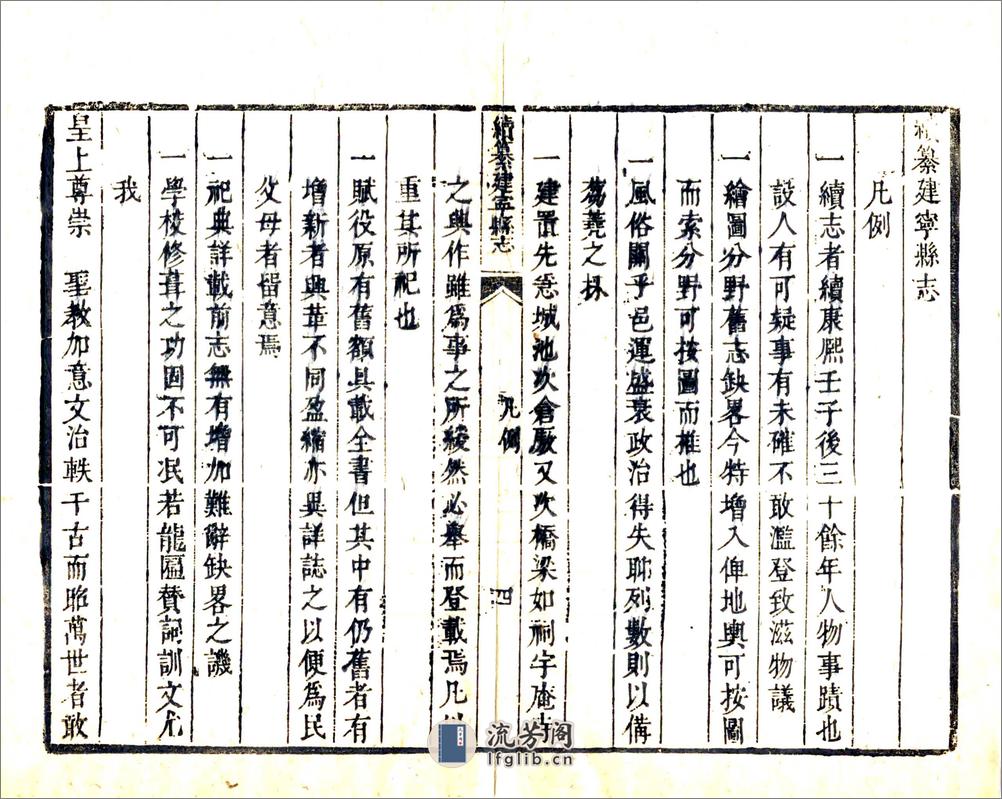 續纂建寧縣志
凡例
一續志者續康熙壬子後三十餘年人物事蹟也
設人有可疑事有未確不敢濫登致滋物議
一繪圖分野舊志缺畧今特增入俾地輿可按圖
而索分野可按圖而推也
一風俗關乎邑運盛衰政治得失聊列數則以備
芻蕘之採
一建置先急城池次倉廒又次橋梁如祠宇庵寺
續纂建寧縣志
凡例
四
之興作雖爲事之所緩然必舉而登載焉凡以
重其所祀也
一賦役原有舊額具載全書但其中有仍舊者有
增新者興革不同盈縮亦異詳誌之以便爲民
父母者留意焉
一祀典詳載前志無有增加難辭缺畧之譏
一學校修葺之功固不可泯若龍匾贊詞訓文尤
我
皇上尊崇 聖教加意文治軼千古而昭萬世者敢
流芳阁
lfglib.cn